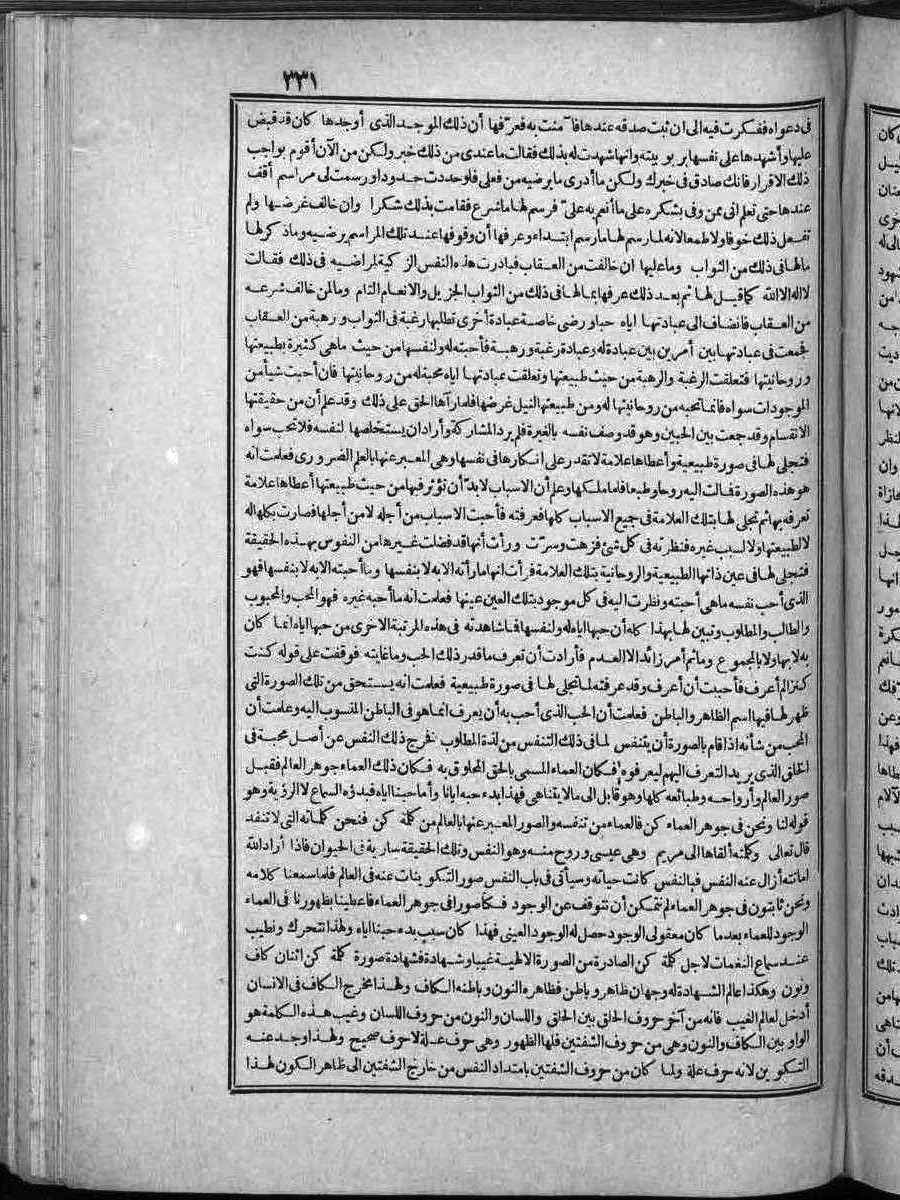 ٣٣١
فى دعواه ففكرت فيه الى ان ثبت صدقه عندها فآمنت به فعرّفها أن ذلك الموجد الذى أوجدها كان قد قبض
عليها وأشهدها على نفسها بربوبيته وانها شهدت له بذلك فقالت ما عندى من ذلك خبر ولكن من الآن أقوم بواجب
ذلك الاقرار فانك صادق فى خبرك ولكن ما أدرى ما يرضيه من فعلى فلو حددت حدودا ورسمت لى مراسم أقف
عندها حتى تعلم انى ممن وفى بشكره على ما أنعم به علىّ فرسم لها ما شرع فقامت بذلك شكرا وان خالف غرضها ولم
تفعل ذلك خوفا ولا طمعا لانه لما رسم لها ما رسم ابتداء وعرفها أن وقوفها عند تلك المراسم يرضيه وما ذكر لها
ما لها فى ذلك من الثواب وما عليها ان خالفت من العقاب فبادرت هذه النفس الزكية لمراضيه فى ذلك فقالت
لا اله الا الله كما قيل لها ثم بعد ذلك عرفها بما لها فى ذلك من الثواب الجزيل والانعام التام وما لمن خالف شرعه
من العقاب فانضاف الى عبادتها اياه حبا ورضى خاصة عبادة أخرى تطلبها رغبة فى الثواب ورهبة من العقاب
فجمعت فى عبادتها بين أمرين بين عبادة له وعبادة رغبة ورهبة فأحبته له ولنفسها من حيث ما هى كثيرة بطبيعتها
وروحانيتها فتعلقت الرغبة والرهبة من حيث طبيعتها وتعلقت عبادتها اياه محبة له من روحانيتها فان أحبت شيأ من
الموجودات سواه فانما تحبه من روحانيتها له ومن طبيعتها لنيل غرضها فلما رآها الحق على ذلك وقد علم أن من حقيقتها
الانقسام وقد جمعت بين الحبين وهو قد وصف نفسه بالغيرة فلم يرد المشاركة وأراد ان يستخلصها لنفسه فلا تحب سواه
فتجلى لها فى صورة طبيعية وأعطاها علامة لا تقدر على انكارها فى نفسها وهى المعبر عنها بالعلم الضرورى فعلمت انه
هو هذه الصورة فمالت اليه روحا وطبعا فلما ملكها وعلم أن الاسباب لا بدّ أن تؤثر فيها من حيث طبيعتها أعطاها علامة
تعرفه بها ثم تجلى لها بتلك العلامة فى جميع الاسباب كلها فعرفته فأحبت الاسباب من أجله لا من أجلها فصارت بكلها له
لا لطبيعتها ولا لسبب غيره فنظرته فى كل شئ فزهت وسرّت ورأت أنها قد فضلت غيرها من النفوس بهذه الحقيقة
فتجلى لها فى عين ذاتها الطبيعية والروحانية بتلك العلامة فرأت انها ما رأته الا به لا بنفسها وما أحبته الا به لا بنفسها فهو
الذى أحب نفسه ما هى أحبته ونظرت اليه فى كل موجود بتلك العين عينها فعلمت انه ما أحبه غيره فهو المحب والمحبوب
والطالب والمطلوب وتبين لها بهذا كله أن حبها اياه له ولنفسها فما شاهدته فى هذه المرتبة الاخرى من حبها اياه انما كان
به لا بها ولا بالمجموع وما ثم أمر زائد الا العدم فأرادت أن تعرف ما قدر ذلك الحب وما غايته فوقفت على قوله كنت
كنزا لم أعرف فأحببت أن أعرف وقد عرفته لما تجلى لها فى صورة طبيعية فعلمت انه يستحق من تلك الصورة التى
ظهر لها فيها اسم الظاهر والباطن فعلمت أن الحب الذى أحب به أن يعرف انما هو فى الباطن المنسوب اليه وعلمت أن
المحب من شأنه اذا قام بالصورة أن يتنفس لما فى ذلك التنفس من لذة المطلوب فخرج ذلك النفس عن أصل محبة فى
الخلق الذى يريد التعرف اليهم ليعرفوه فكان العماء المسمى بالحق المخلوق به فكان ذلك العماء جوهر العالم فقبل
صور العالم وأرواحه وطبائعه كلها وهو قابل الى ما لا يتناهى فهذا بدء حبه ايانا وأما حبنا اياه فبدؤه السماع لا الرؤية وهو
قوله لنا ونحن فى جوهر العماء كن فالعماء من تنفسه والصور المعبر عنها بالعالم من كلمة كن فنحن كلماته التى لا تنفد
قال تعالى وكلمته ألقاها الى مريم وهى عيسى وروح منه وهو النفس وتلك الحقيقة سارية فى الحيوان فاذا أراد الله
اماتته أزال عنه النفس فبالنفس كانت حياته وسيأتى فى باب النفس صور التكوينات عنه فى العالم فلما سمعنا كلامه
ونحن ثابتون فى جوهر العماء لم نتمكن أن نتوقف عن الوجود فكنا صورا فى جوهر العماء فاعطينا بظهورنا فى العماء
الوجود للعماء بعد ما كان معقولى الوجود حصل له الوجود العينى فهذا كان سبب بدء حبنا اياه ولهذا نتحرك ونطيب
عند سماع النغمات لاجل كلمة كن الصادرة من الصورة الالهية غيبا وشهادة فشهادة صورة كلمة كن اثنان كاف
ونون وهكذا عالم الشهادة له وجهان ظاهر وباطن فظاهره النون وباطنه الكاف ولهذا مخرج الكاف فى الانسان
أدخل لعالم الغيب فانه من آخر حروف الحلق بين الحلق واللسان والنون من حروف اللسان وغيب هذه الكلمة هو
الواو بين الكاف والنون وهى من حروف الشفتين فلها الظهور وهى حرف علة لا حرف صحيح ولهذا وجد عنه
التكوين لانه حرف علة ولما كان من حروف الشفتين بامتداد النفس من خارج الشفتين الى ظاهر الكون لهذا